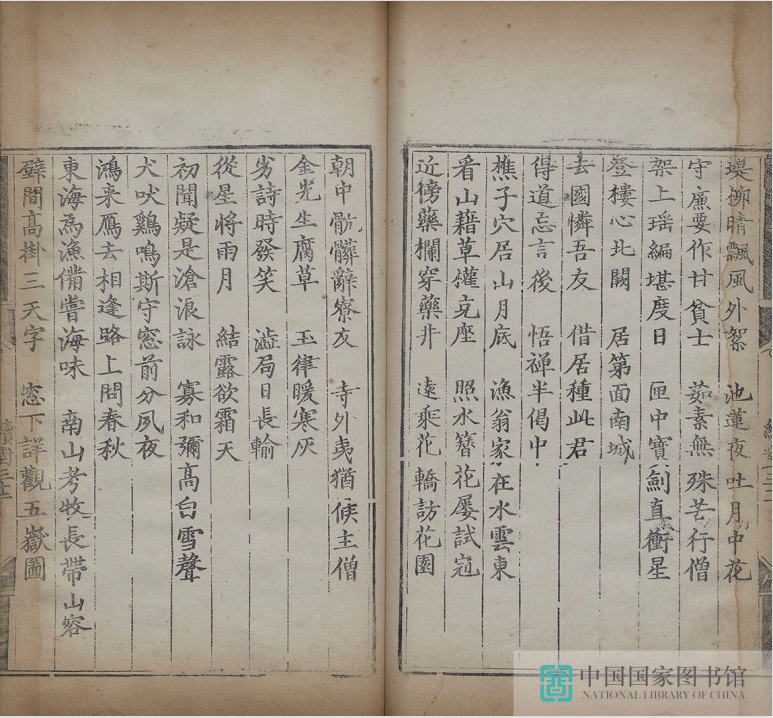 堤柳晴飄風外絮　池蓮夜吐月中花
守廉要作甘貧士　茹素無殊苦行僧
架上瑶編堪度日　匣中寶劍直衝星
登樓心北闕　居第面南城
去國憐吾友　借居種此君
得道忘言後　悟禅半偈中
樵子穴居山月底　漁翁家在水雲東
看山藉草懽克座　照水簪花屡試冠
近徬藥欄穿藥井　遠乘花轎訪花園
朝中骯髒辭寮友　寺外夷猶候主僧
金光生腐草　玉律暖寒灰
劣詩時發笑　澁局日長輸
從星將雨月　結露欲霜天
初聞疑是滄浪詠　寡和彌高白雪聲
犬吠鷄鳴斯守窓前分夙夜
鴻来鴈去相逢路上問春秋
東海為漁備嘗海味　南山考牧長帶山容
壁間高掛三天字　窓下詳觀五嶽圖
中国国家图书馆
NATIONAL LIBRARY OF CHINA